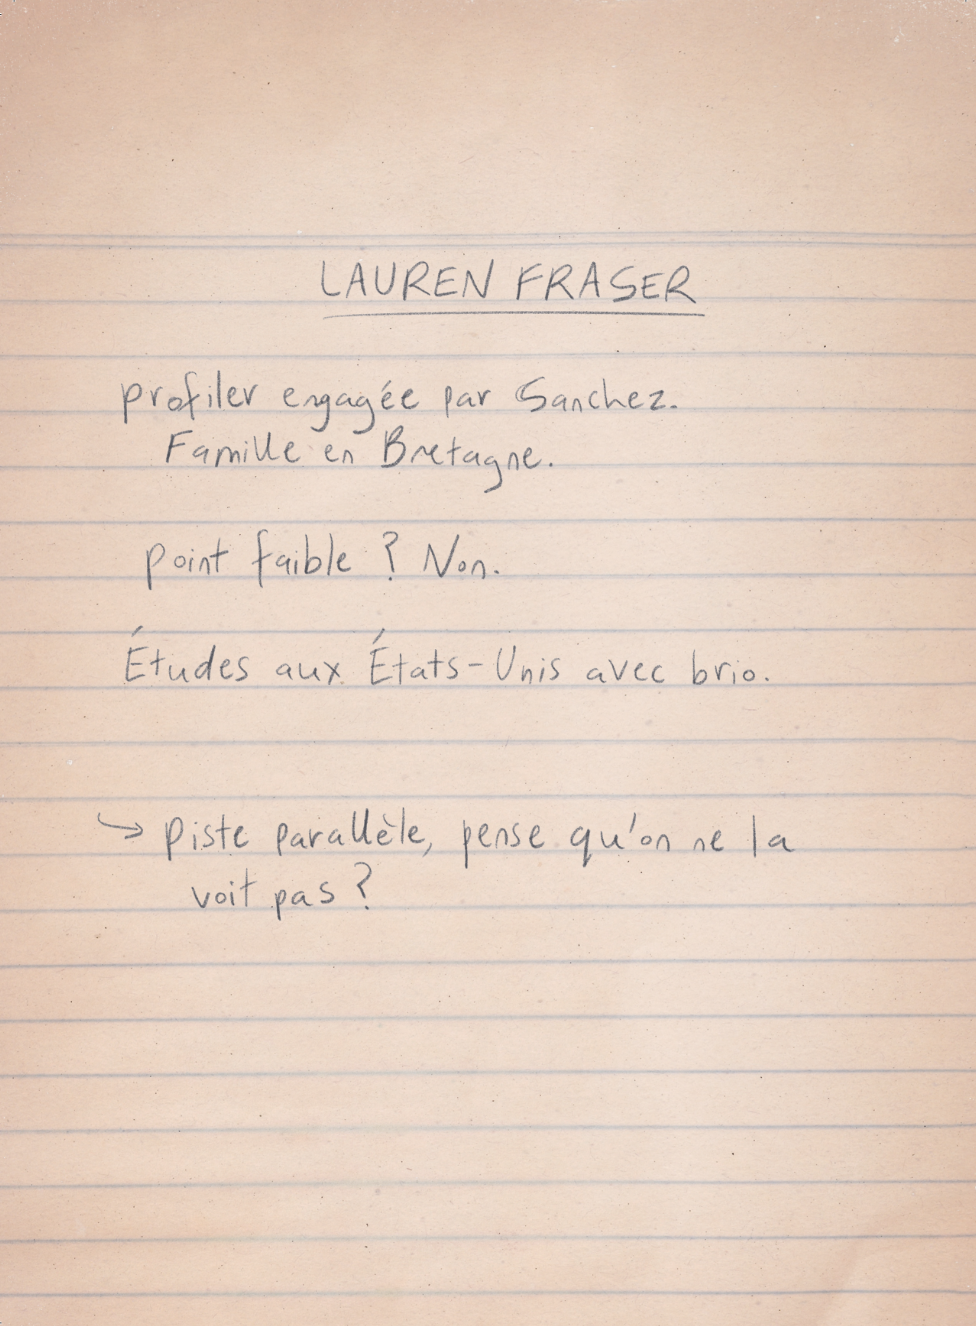 LAUREN FRASER
profiler engagée par Sanchez.
Famille en Bretagne.
point faible ? Non.
Études aux États-Unis avec brio.
→ Piste parallèle, pense qu'on ne la
voit pas ?